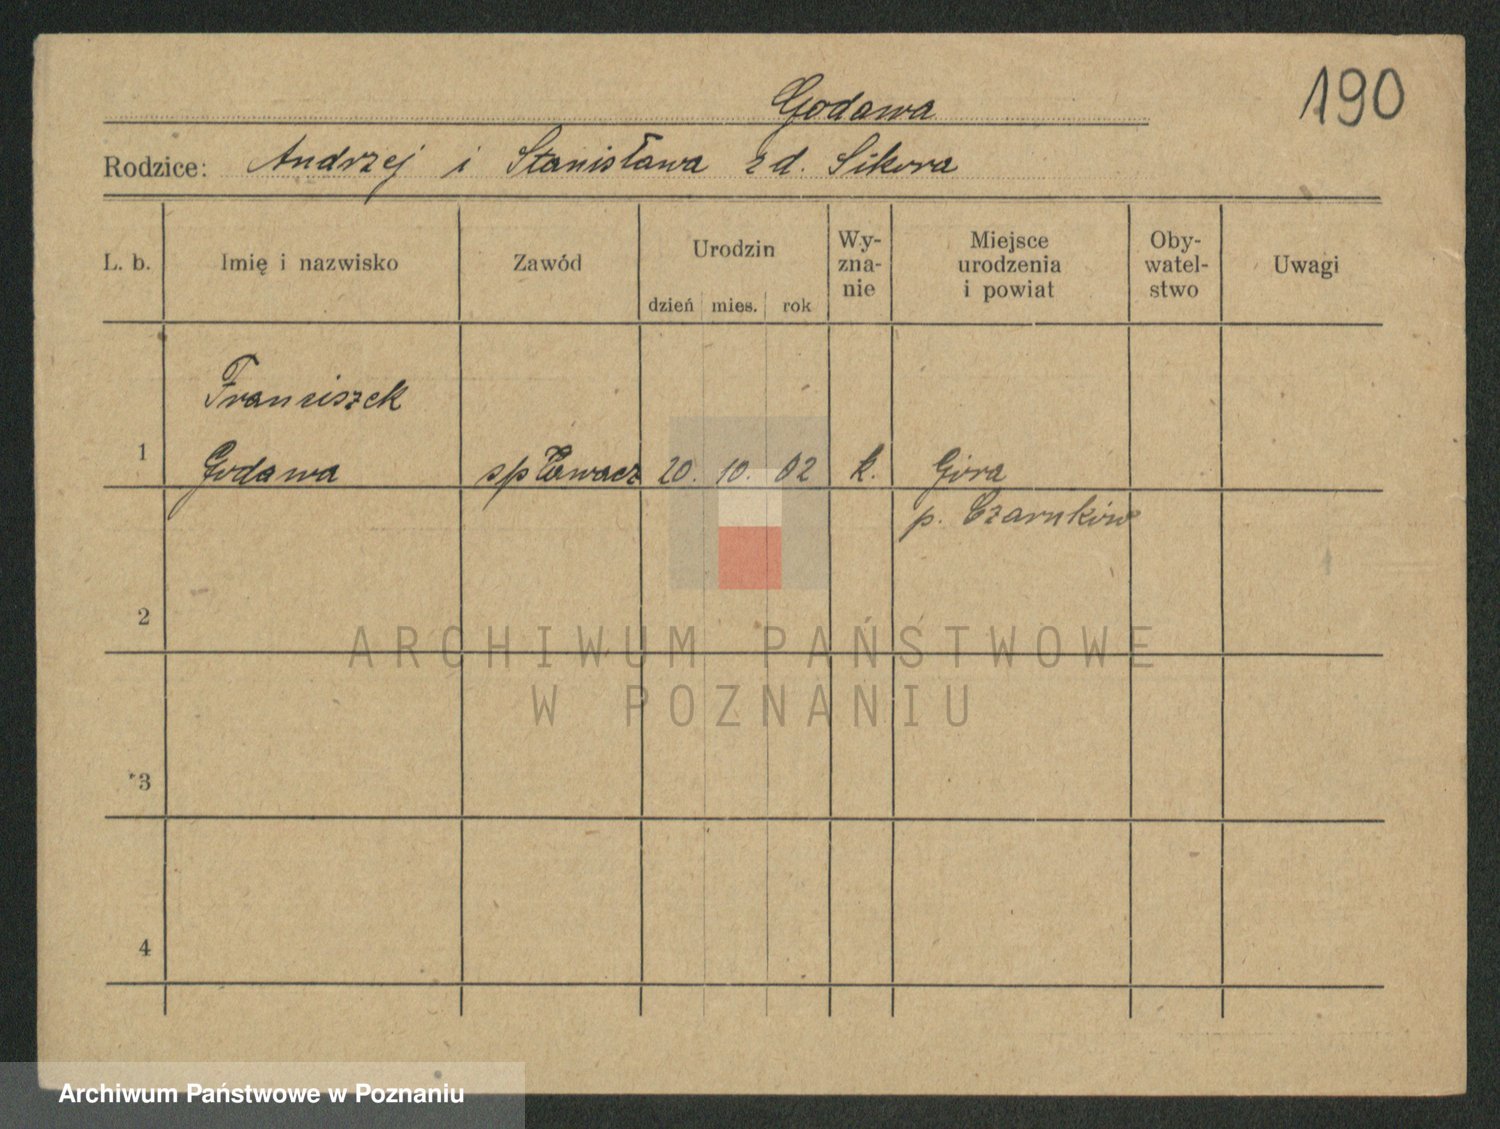 190
Godawa
Rodzice: Andrzej i Stanisława zd. Sikora
L. b. Imię i nazwisko Zawód Urodzin dzień mies. rok Wy-zna-nie Miejsce urodzenia i powiat Oby-watel-stwo Uwagi
Franciszek
1 Godawa spławacz 20. 10. 02 k. Góra
p. Czarnków
2
ARCHIWUM PAŃSTWOWE
W POZNANIU
3
4
Archiwum Państwowe w Poznaniu